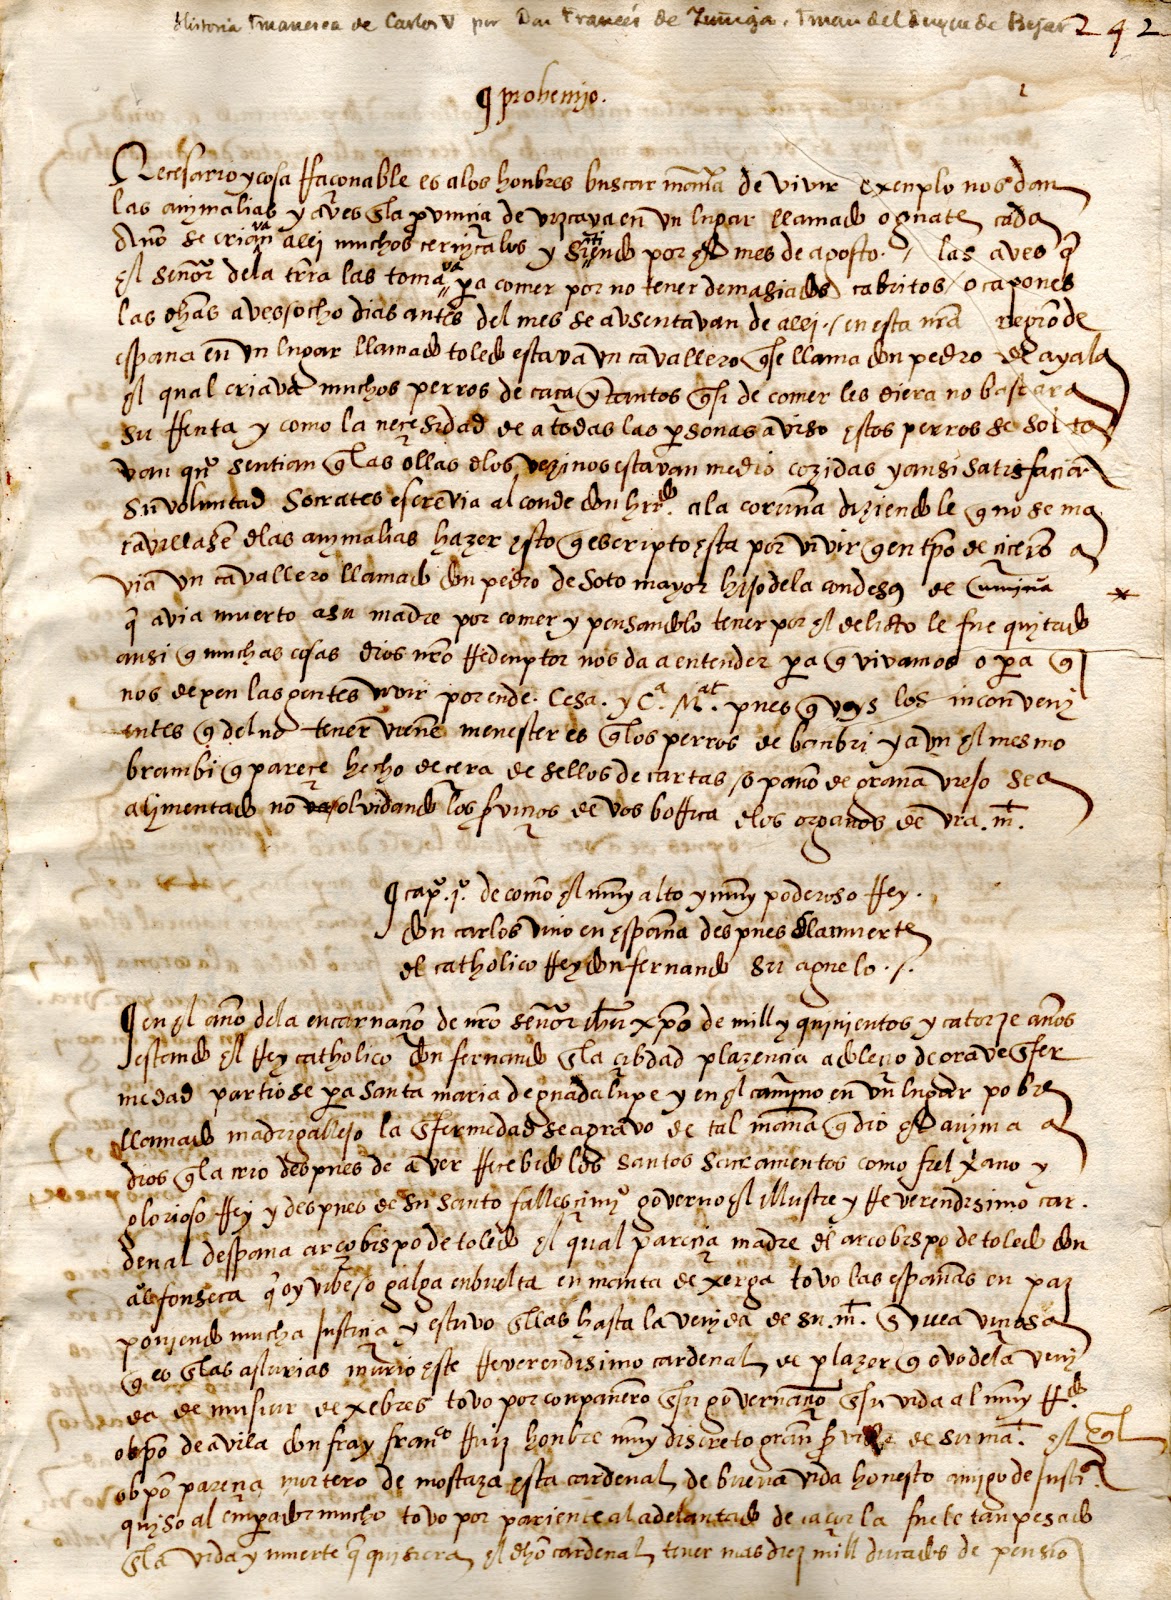 Historia Manusca de Carlos V por Don Francés de Zuñiga, Truan del duque de Bejar 242
¶ prohemjo. 1
Necesario y cosa rraçonable es a los honbres buscar mãnã de vivir exenplo nos dan
las anymalias y aves q̃ la provincia de vizcaya en un lugar llamado oñate cada
año se criavan alli muchos cernycalos y siendo por el mes de agosto. las aves q̃
el señor de la trrã las tomava pa comer por no tener demasiados cabritos / o capones
las dhas aves / ocho dias antes del mes se avsentavan de alli ./ en esta nrã region de
españa en un lugar llamado toledo estava un cavallero q̃ se llama don pedro de ayala
el qual criava muchos perros de caça y tantos q̃ si de comer les diera no bastara
su rrenta y como la neçesidad de a todas las psonas aviso estos perros se solta
van qnº sentian q̃ las ollas dlos vezinos estavan medio cozidas y ansi satisfacian
su voluntad Socrates escrevia al conde don hrrdº. a la coruña diziendole q̃ no se ma
ravillase dlas anymalias hazer esto q̃ escripto esta por vivir q̃ en tpo de ciceron a
via un cavallero llamado don pedro de Soto mayor hijo de la condesa de camiña
q̃ avia muerto a su madre por comer y pensandolo tener por el delicto le fue quitado
ansi q̃ muchas cosas dios nrõ rredenptor nos da a entender pa q̃ vivamos o pa q̃
nos dexen las gentes vivir por ende. Cesa. y Cª. Mat. pues q̃ veys los inconveny
entes q̃ del no tener viene menester es q̃ los perros de banbri y aun el mesmo
brambi q̃ pareçe hecho de cera de sellos de cartas / o paño de grana vieso sea
alimentado no olvidando los de vos de los organos de vrã. mt.
¶ capº. jº. de como el muy alto y muy poderoso rrey.
don carlos vino en españa despues de la muerte
del catholico rrey don fernando su aguelo ./.
¶ en el año de la encarnaçion de nrõ señor ihu xpo de mill y quinientos y catorze años
estando el rrey catholico don fernando q̃ la cibdad plazencia adoleçio de grave efer
medad partiose pa santa maria de guadalupe y en el camino en un lugar pobre
llamado madrigallejo la efermedad se agravo de tal manã q̃ dio el anyma a
dios q̃ la crio despues de aver rrecebido los santos sacramentos como fiel xano y
glorioso rrey y despues de su santo fallesçimjº governo el illustre y rreverendisimo car.
denal despaña arçobispo de toledo el qual parecia madre del arçobispo de toledo don
alº fonseca q̃ oy vibe / o galga enbuelta en manta de xerga tovo las españas en paz
ponjendo mucha justicia y estuvo ellas hasta la venjda de su. mt. villa viçiosa
q̃ es q̃ las asturias murio este rreverendisimo cardenal de plazer q̃ ovo de la veni
da de musiur de xebres tovo por conpañero e su governaçion e su vida al muy rrdo.
obpo de avila don fray franco rruiz honbre muy discreto gran de su mat. el ql
obpo parecia mortero de mostaza esta cardenal de buena vida honesto amigo de justicia
quiso al enperador mucho tovo por pariente al adelantado de caçorla fuele tan pesado
q̃ la vida y muerte q̃ quisiera el dho cardenal tener mas diez mill ducados de pensio